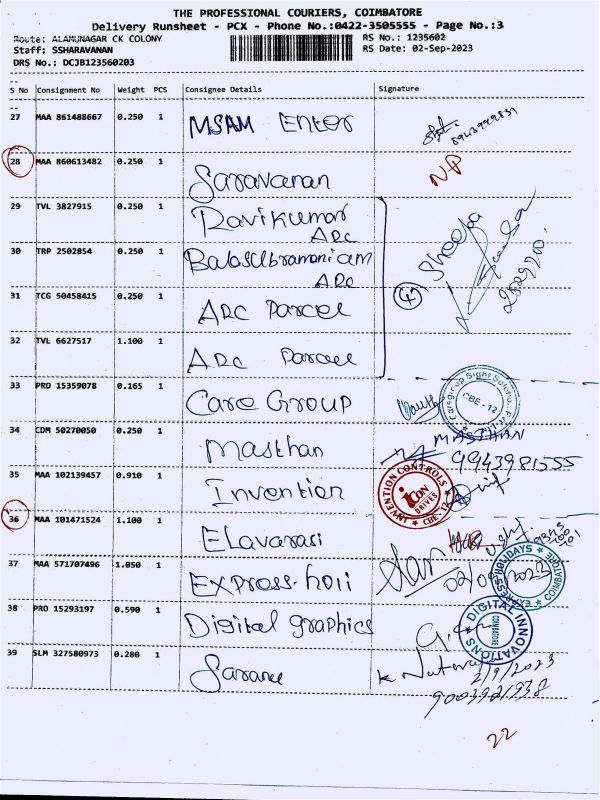 THE PROFESSIONAL COURIERS, COIMBATORE
Delivery Runsheet - PCX - Phone No.:0422-3505555 - Page No.:3
Route: ALAMUNAGAR CK COLONY
RS No.: 1235602
Staff: SSHARAVANAN
RS Date: 02-Sep-2023
DRS No.: DCJB123560203
S No Consignment No Weight PCS Consignee Details Signature
27 MAA 861488667 0.250 1 MSAM Enter
28 MAA 860613482 0.250 1 Saravanan NP
29 TVL 3827915 0.250 1 Ravikumar
ARC
30 TRP 2502854 0.250 1 Balasubramaniam Sheepa
ARC
31 TCG 50458415 0.250 1 ARC Parcel 4
32 TVL 6627517 1.100 1 ARC Parcel
33 PRO 15359078 0.165 1 Care Group
CBE - 12
34 CDM 50270050 0.250 1 Masthan MASTHAN
9943981555
35 MAA 102139457 0.910 1 Invention
INVENTION CONTROLS
iCON
DRIVES
CBE - 12
36 MAA 101471524 1.100 1 Elavarasi
37 MAA 571707496 1.050 1 Express-holi
EXPRESS HOLIDAYS COIMBATORE
38 PRO 15293197 0.590 1 Digital graphics
DIGITAL INNOVATIONS
COIMBATORE
39 SLM 327580973 0.280 1 Saranu
2/9/2023
9003921938
22